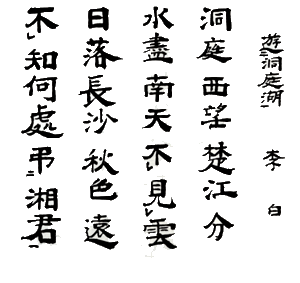 遊洞庭湖 李白
洞庭西望楚江分
水盡南天不見雲
日落長沙秋色遠
不知何處弔湘君